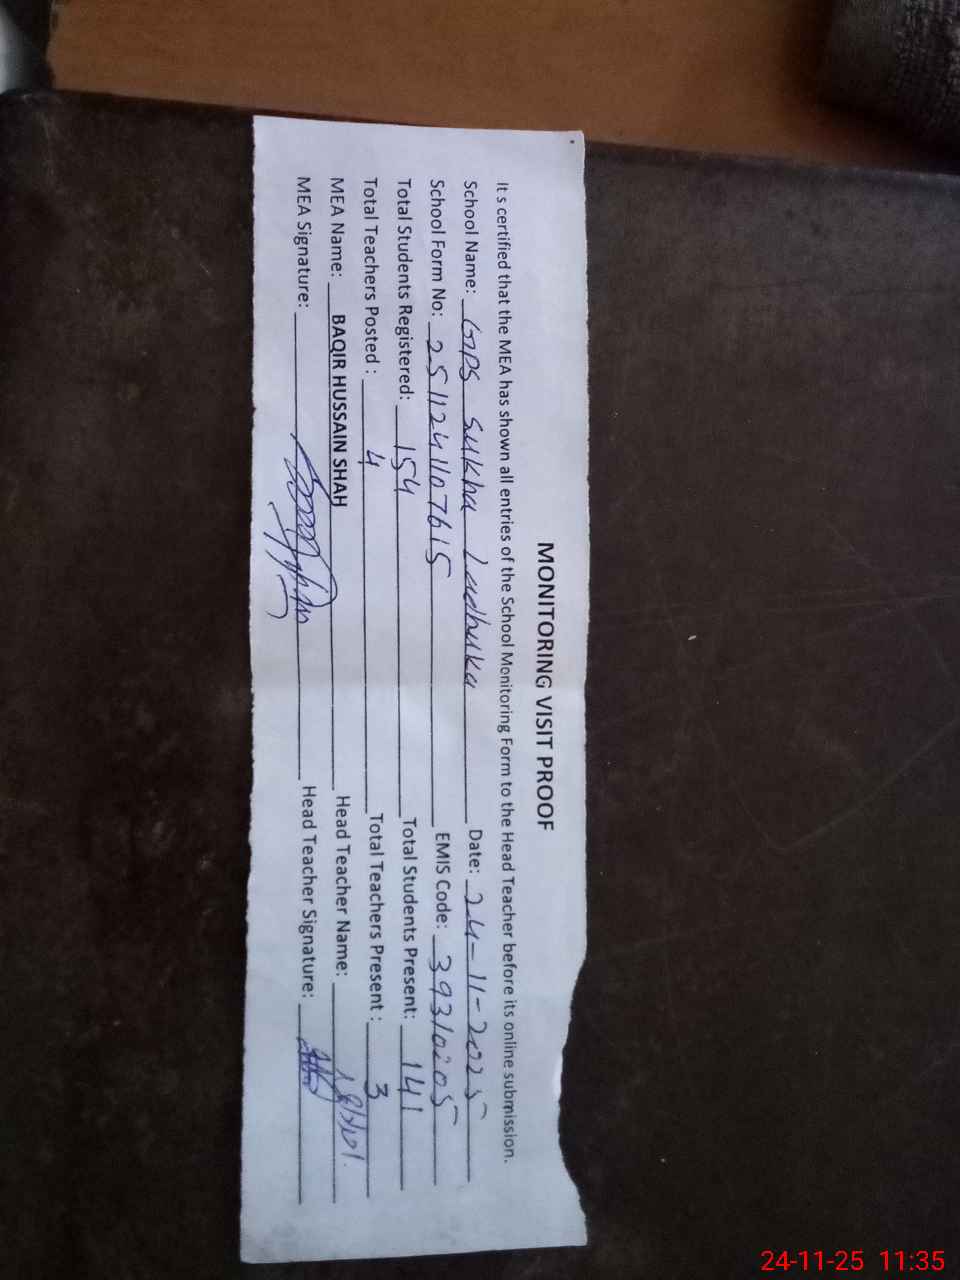 MONITORING VISIT PROOF
It s certified that the MEA has shown all entries of the School Monitoring Form to the Head Teacher before its online submission.
School Name: GPS Sukha Ladhuka Date: 24-11-2025
School Form No: 2511241107615 EMIS Code: 39310205
Total Students Registered: 154 Total Students Present: 141
Total Teachers Posted : 4 Total Teachers Present : 3
MEA Name: BAQIR HUSSAIN SHAH Head Teacher Name:
MEA Signature: Head Teacher Signature:
24-11-25 11:35